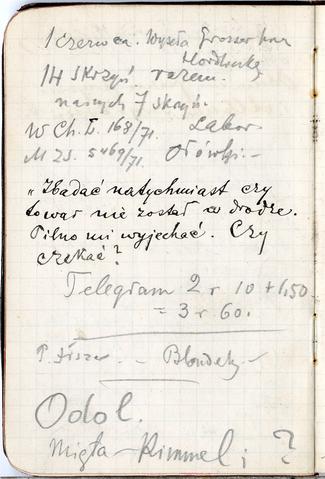 1 czerwca. Wysyła Grosser przez
14 skrzyń. razem.
naszych 7 skrzyń.
W Ch. L. 168/71. Labor
M 25. 5469/71. Ołówki. -
"Zbadać natychmiast czy
towar nie został w drodze.
Pilno mi wyjechać. Czy
czekać?
Telegram 2 r 10 + 1,50
= 3 r 60.
P. Fiszer. - Blondely -
Odol.
Migła - Rimmel; ?